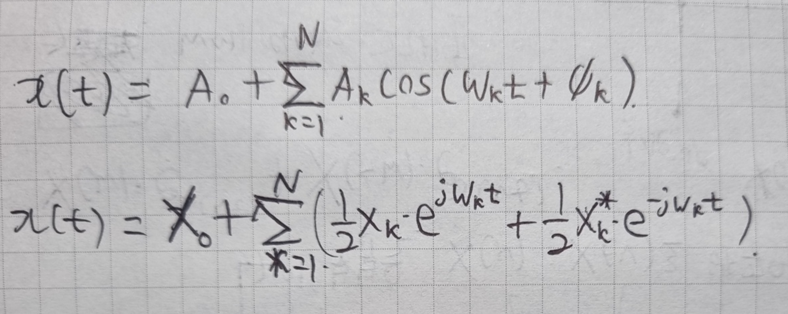 x(t) = A₀ + ∑_{k=1}^{N} A_k cos(ω_k t + φ_k)
x(t) = X₀ + ∑_{k=1}^{N} (½ X_k · e^{jω_k t} + ½ X_k^* · e^{-jω_k t})